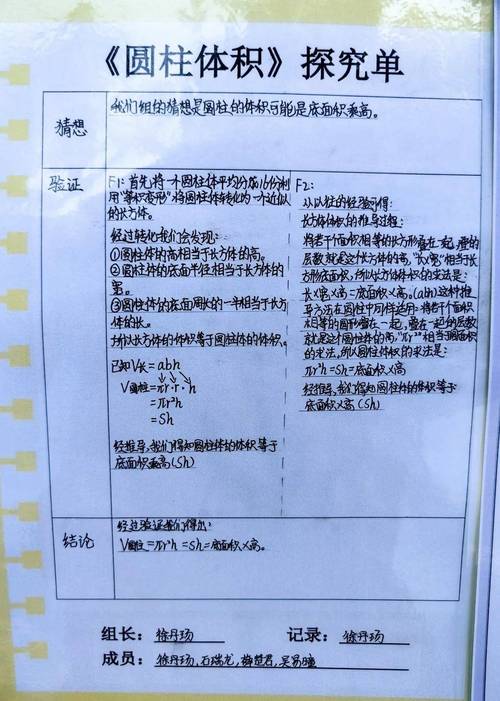 《圆柱体积》探究单
猜想
我们组的猜想是圆柱的体积可能是底面积乘高。
验证
F1：首先将一个圆柱体平均分成几份，利
用"等积变形"，将圆柱体转化为一个近似
的长方体。
经过转化我们会发现：
①圆柱体的高相当于长方体的高。
②圆柱体的底面半径相当于长方体的
宽。
③圆柱体的底面周长的一半相当于长方
体的长。
所以长方体的体积等于圆柱体的体积。
已知V长=abh
V圆柱=πr·r·h
=πr²h
=Sh
经推导，我们得知圆柱体的体积等于
底面积乘高(Sh)
F2：
从以往的经验可得：
长方体体积的推导过程：
将若干个面积相等的长方形叠在一起，叠的
层数就是这个长方体的高，"长×宽"相当于长
方形底面积，所以长方体体积的求法是：
长×宽×高=底面积×高。(abh)这种推
导方法在圆柱中同样适用：将若干个面积
相等的圆形叠在一起，叠在一起的层数
就是这个圆柱体的高，"πr²"相当于圆面积
的求法，所以圆柱体积的求法是：
πr²h=Sh=底面积×高
经推导，我们得知圆柱体的体积等于
底面积×高(Sh)
结论
经过验证我们得出：
V圆柱=πr²h=Sh=底面积×高。
组长：徐丹玚 记录：徐丹玚
成员：徐丹玚，石瑞龙，薛楚君，吴易曈